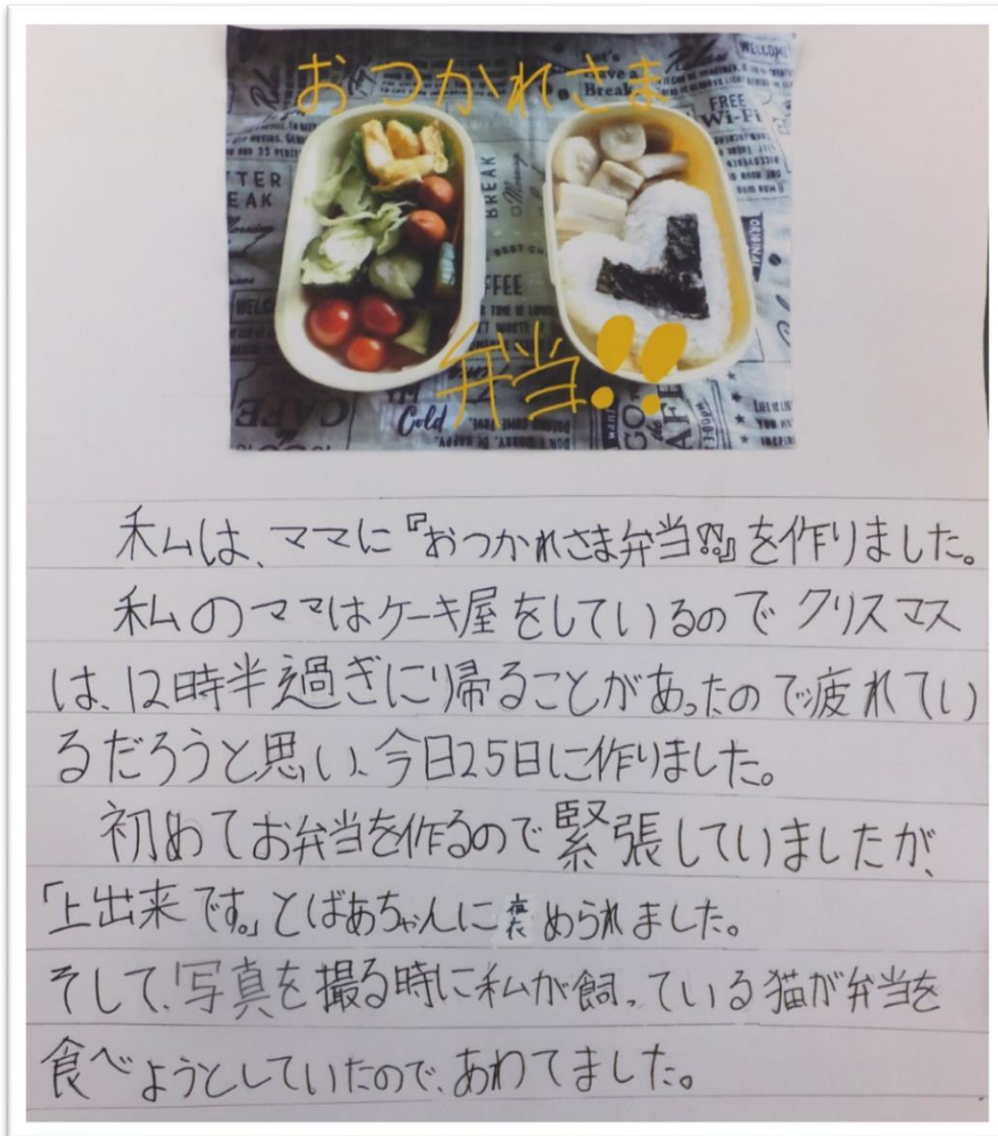 おつかれさま
弁当!!
WELCOME
FREE
Wi-Fi
BREAK
EAK
ORIGINAL
Cold
私は、ママに『おつかれさま弁当!!』を作りました。
私のママはケーキ屋をしているのでクリスマス
は、12時半過ぎに帰ることがあったので疲れてい
るだろうと思い、今日25日に作りました。
初めてお弁当を作るので緊張していましたが、
「上出来です。」とばあちゃんに褒められました。
そして、写真を撮る時に私が飼っている猫が弁当を
食べようとしていたので、あわてました。